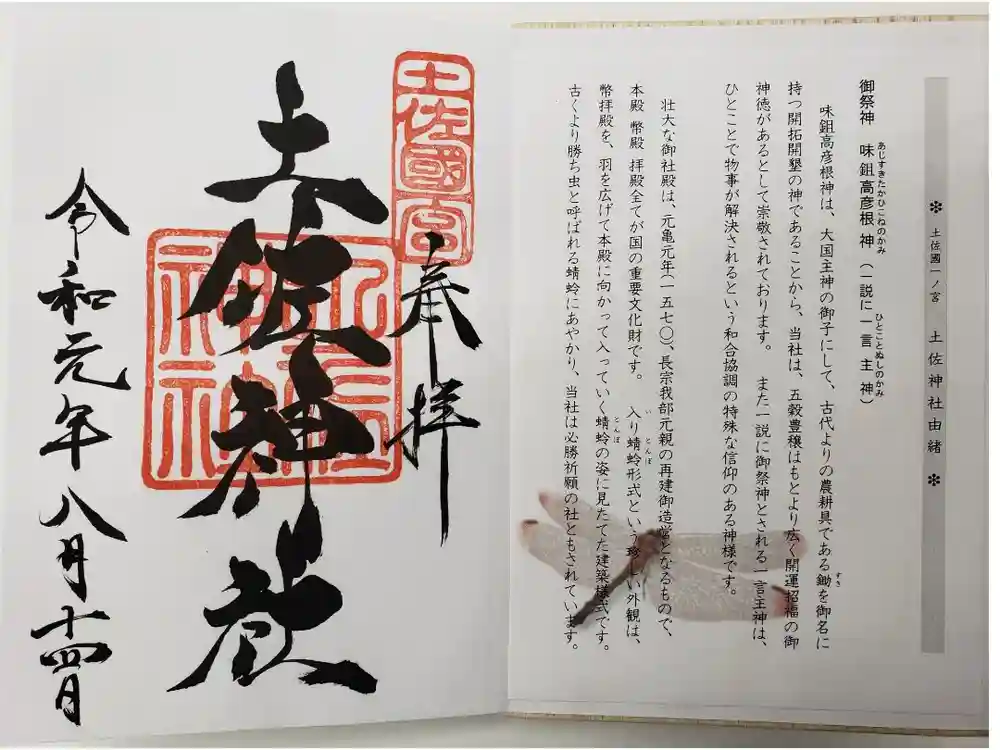 ❇ 土佐國一ノ宮 土佐神社由緒 ❇
御祭神 味鉏高彦根神(一説に一言主神)
あじすきたかひこねのかみ
ひとことぬしのかみ
味鉏高彦根神は、大国主神の御子にして、古代よりの農耕具である鋤を御名に
すき
持つ開拓開墾の神であることから、当社は、五穀豊穣はもとより広く開運招福の御
神徳があるとして崇敬されております。 また一説に御祭神とされる一言主神は、
ひとことで物事が解決されるという和合協調の特殊な信仰のある神様です。
壮大な御社殿は、元亀元年(一五七〇)、長宗我部元親の再建御造営となるもので、
本殿 幣殿 拝殿全てが国の重要文化財です。 入り蜻蛉形式という珍しい外観は、
い とんぼ
幣拝殿を、羽を広げて本殿に向かって入っていく蜻蛉の姿に見たてた建築様式です。
とんぼ
古くより勝ち虫と呼ばれる蜻蛉にあやかり、当社は必勝祈願の社ともされています。
土佐國一宮
奉拝
土佐神社
令和元年八月十四日